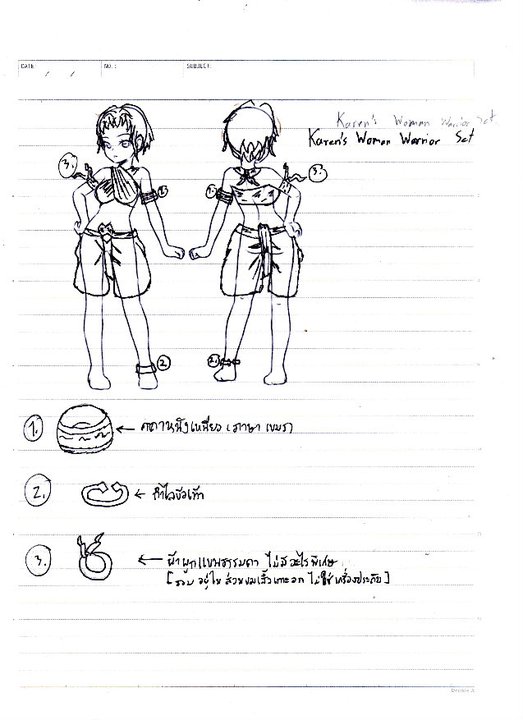 DATE / / NO.: SUBJECT:
Karen's Woman Warrior Set
Karen's Woman Warrior Set
3. 1. 1. 3.
2. 2.
1. คถาหนังเหนียว (ภาษา เขมร)
2. กำไลข้อเท้า
3. ผ้าผูกแขนธรรมดา ไม่มีอะไรพิเศษ
[รวม อยู่ใน ส่วนของเสื้อเกาะอก ไม่ใช่ เครื่องประดับ]